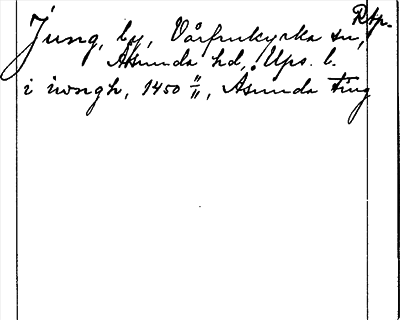 Rtp.
Jung, by, Vårfrukyrka sn,
Åsunda hd, Ups. l.
i iwngh, 1450 11/11, Åsunda ting